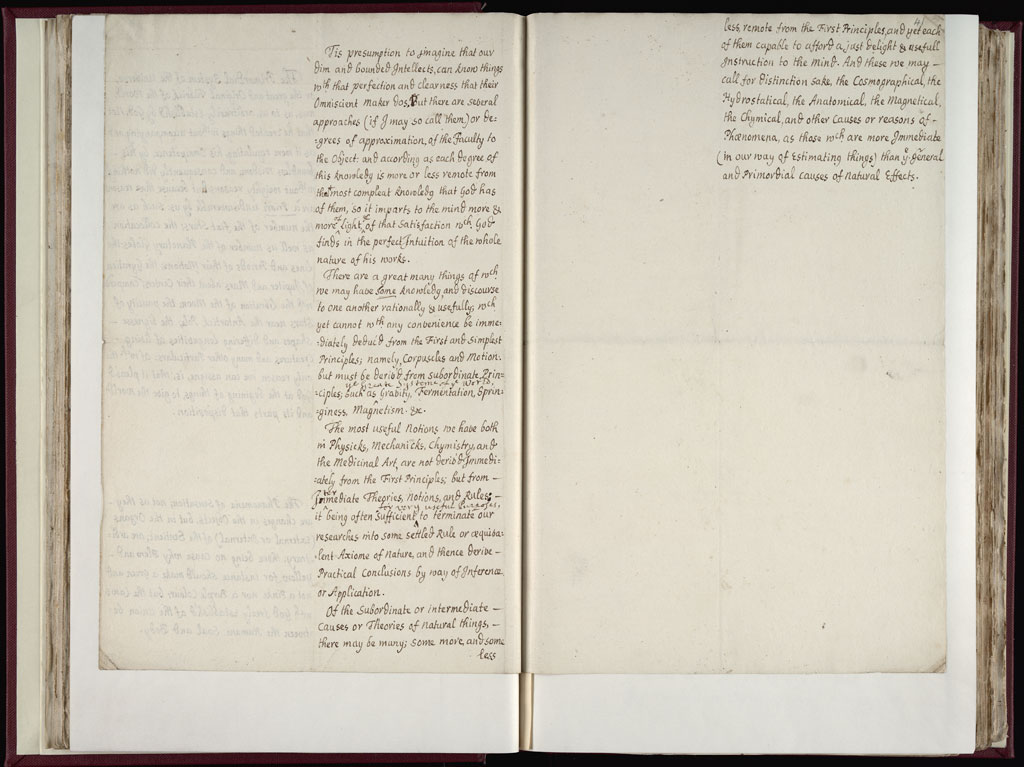 Tis presumption to imagine that our
dim and bounded Intellects, can know things
wth that perfection and clearness that their
Omniscient maker dos, But there are several
approaches (if I may so call them) or de-
-grees of approximation, of the Faculty to
the Object: and according as each degree of
this knowledg is more or less remote from
that most compleat knowledg that God has
of them, so it imparts to the mind more &
more of Light, & of that Satisfaction wch God
finds in the perfect Intuition of the whole
nature of his works.
There are a great many things of wch
we may have some knowledg, and discourse
to one another rationally & usefully, wch
yet cannot wth any convenience be imme-
-diately deduc'd from the First and Simplest
Principles; namely, Corpuscles and Motion.
but must be deriv'd from subordinate Prin=
ye Great Systeme of ye World,
=ciples; such as Gravity, Fermentation, Sprin-
-giness, Magnetism. &c.
The most useful Notions we have both
in Physicks, Mechanicks, Chymistry, and
the Medicinal Art, are not deriv'd Immedi-
-ately from the First Principles; but from -
Intermediate Theories, Notions, and Rules; -
for very useful Purposes,
it being often Sufficient to terminate our
researches into some settled Rule or æquiva-
-lent Axiome of Nature, and thence derive -
Practical Conclusions by way of Inference
or Application.
Of the Subordinate or intermediate -
Causes or Theories of natural things, -
there may be many; some more, and some
less
4
less, remote from the First Principles, and yet each
of them capable to afford a just delight & usefull
Instruction to the mind. And these we may -
call for distinction sake, the Cosmographical, the
Hydrostatical, the Anatomical, the Magnetical,
the Chymical, and other Causes or reasons of -
Phænomena, as those wch are more Immediate
(in our way of Estimating things) than ye general
and Primordial causes of Natural Effects.